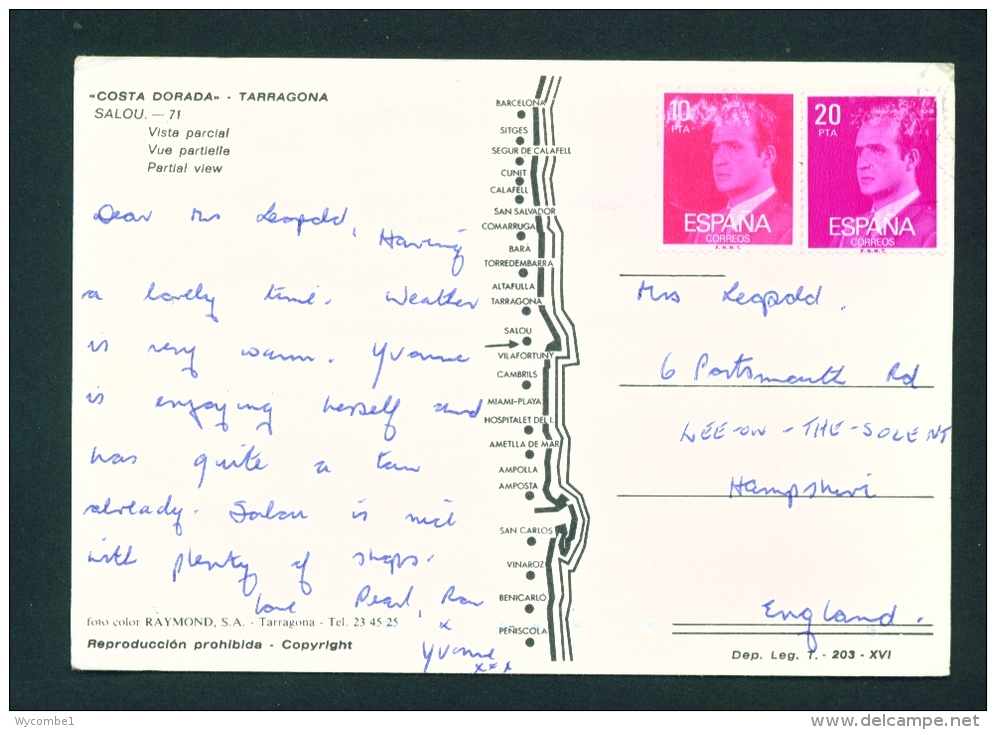 «COSTA DORADA» - TARRAGONA
SALOU. — 71
Vista parcial
Vue partielle
Partial view
Dear Mrs Leopold,
Having
a lovely time. Weather
is very warm. Yvonne
is enjoying herself and
has quite a tan
already. Salou is nice
with plenty of shops.
love Pearl, Ron
x
Yvonne
xxx
foto color RAYMOND, S.A. - Tarragona - Tel. 23 45 25
Reproducción prohibida - Copyright
BARCELONA
SITGES
SEGUR DE CALAFELL
CUNIT
CALAFELL
SAN SALVADOR
COMARRUGA
BARÁ
TORREDEMBARRA
ALTAFULLA
TARRAGONA
SALOU
VILAFORTUNY
CAMBRILS
MIAMI-PLAYA
HOSPITALET DEL I.
AMETLLA DE MAR
AMPOLLA
AMPOSTA
SAN CARLOS
VINAROZ
BENICARLO
PEÑISCOLA
10
PTA
ESPAÑA
CORREOS
F.N.M.T.
20
PTA
ESPAÑA
CORREOS
F.N.M.T.
Mrs Leopold.
6 Portsmouth Rd
LEE-ON-THE-SOLENT
Hampshire
England.
Dep. Leg. T. - 203 - XVI
Wycombe1
www.delcampe.net